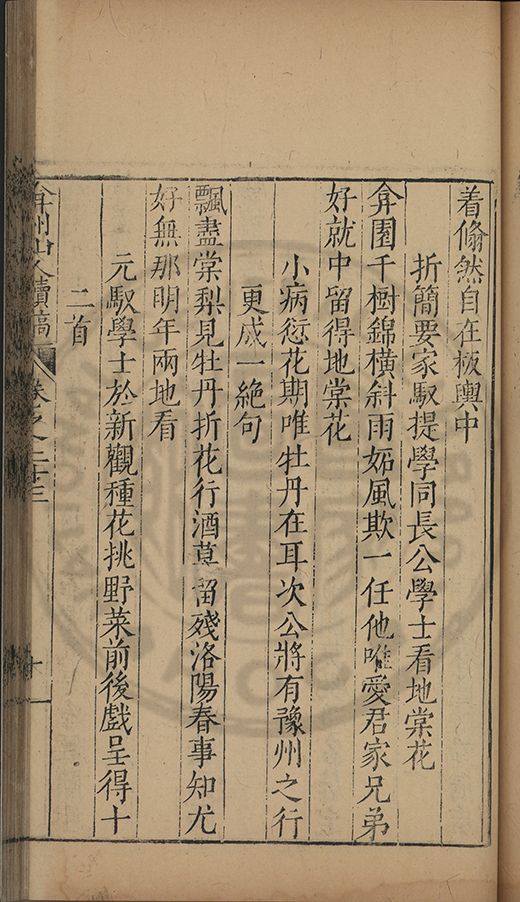 着翛然自在板輿中
折簡要家馭提學同長公學士看地棠花
弇園千樹錦橫斜雨妬風欺一任他唯愛君家兄弟
好就中留得地棠花
小病愆花期唯牡丹在耳次公將有豫州之行
更成一絕句
飄盡棠梨見牡丹折花行酒莫留殘洛陽春事知尤
好無那明年兩地看
元馭學士於新觀種花挑野菜前後戲呈得十
二首
弇州山人續稿 卷之二十三
十